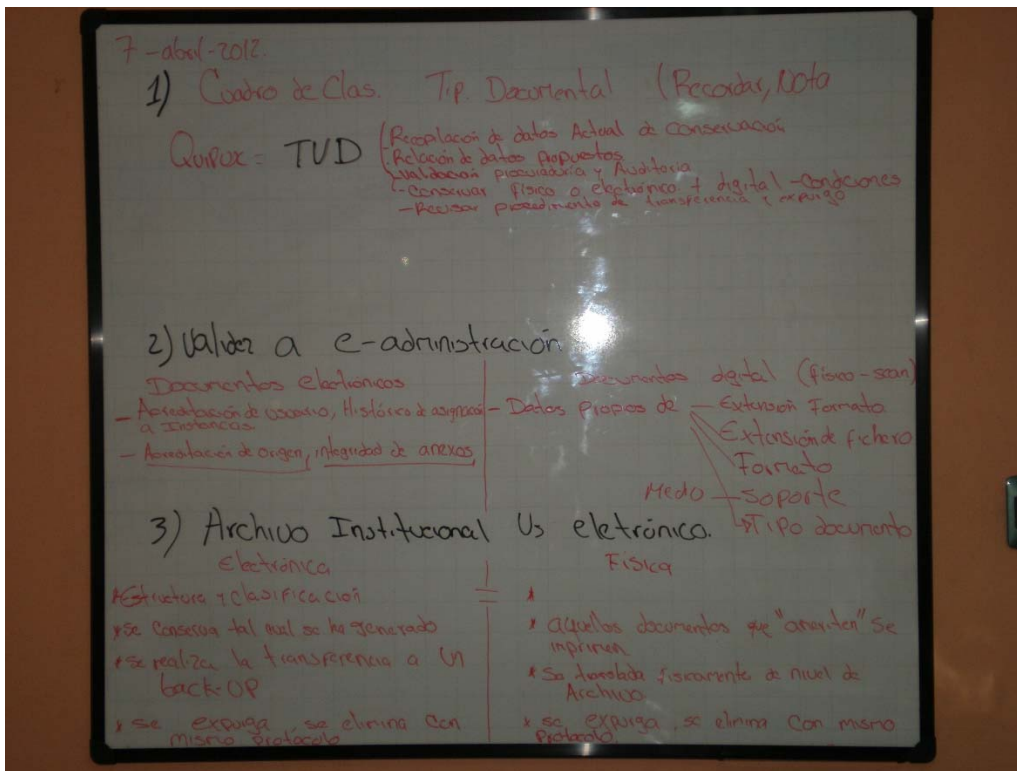 7-abril-2012.
1) Cuadro de Clas. Tip. Documental (Recordar, Nota
Quipux = TVD (Recopilación de datos Actual de conservación
Relación de datos propuestos
validación procuraduría y Auditoria
- Conservar físico o electrónico + digital - Condiciones
- Revisar procedimiento de transferencia y expurgo
2) Validez a e-administración
Documentos electrónicos
- Acreditación de usuario, Histórico de asignación
a Instancias
- Acreditación de origen, integridad de anexos
Documentos digital (físico-scan)
- Datos propios de - Extensión Formato
Extensión de fichero
Formato
Medio - Soporte
Tipo documento
3) Archivo Institucional Vs eletrónico.
Electrónica
* Estructura y clasificación
* se conserva tal cual se ha generado
* se realiza la transferencia a un
back-up
* se expurga, se elimina con
mismo protocolo
Física
*
* aquellos documentos que "ameriten" se
impriman
* Se traslada físicamente de nivel de
Archivo
* se expurga, se elimina con mismo
Protocolo